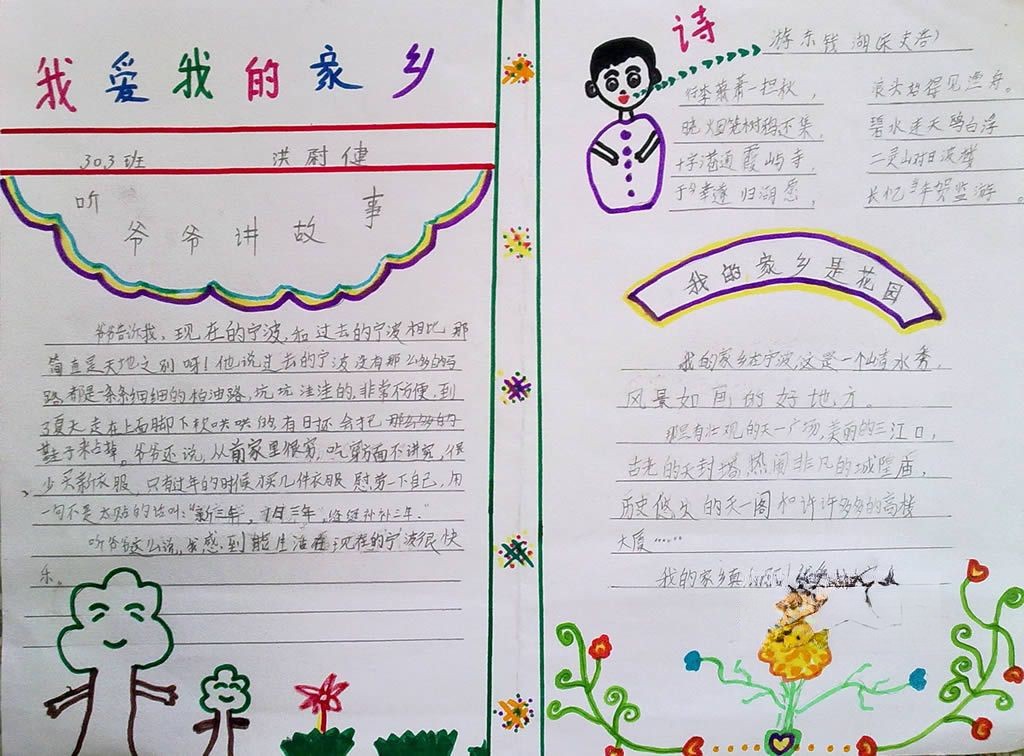 我爱我的家乡
303班 洪尉健
听爷爷讲故事
爷爷告诉我,现在的宁波,和过去的宁波相比那
简直是天地之别呀!他说过去的宁波没有那么多的马
路,都是一条条细细的柏油路,坑坑洼洼的,非常不方便,到
了夏天走在上面脚下软哄哄的,有时还会把
鞋子来占掉。爷爷还说,从前家里很穷,吃穿方面不讲究,很
少买新衣服,只有过年的时候买几件衣服慰劳一下自己,用
一句不是太贴的话叫:“新三年,旧三年,缝缝补补三年。”
听爷爷这么说,我感到能生活在现在的宁波很快
乐。
诗
游东钱湖
行李萧萧一担秋,
浪头始得见渔舟。
晓烟笼树鸦还集,
碧水连天鸥自浮
十字港通霞屿寺,
二灵山对月波楼
于今幸遂归湖愿,
长忆当年贺监游。
我的家乡是花园
我的家乡在宁波,这是一个山清水秀,
风景如画的好地方。
那里有壮观的天一广场,美丽的三江口,
古老的天封塔,热闹非凡的城隍庙,
历史悠久的天一阁和许许多多的高楼
大厦……
我的家乡真